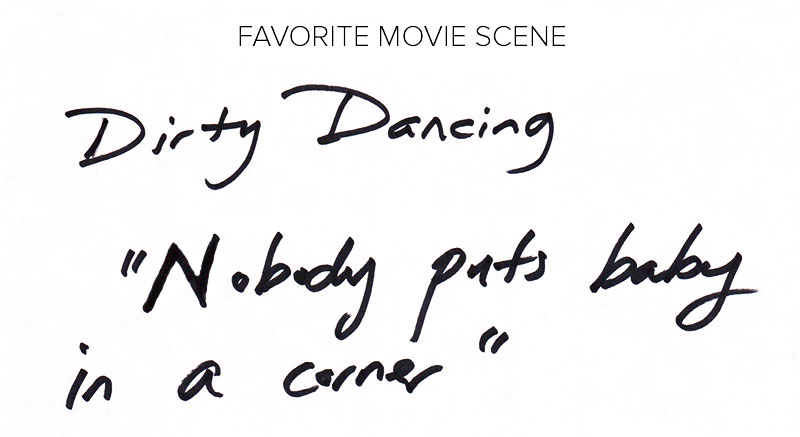 FAVORITE MOVIE SCENE
Dirty Dancing
"Nobody puts baby
in a corner"